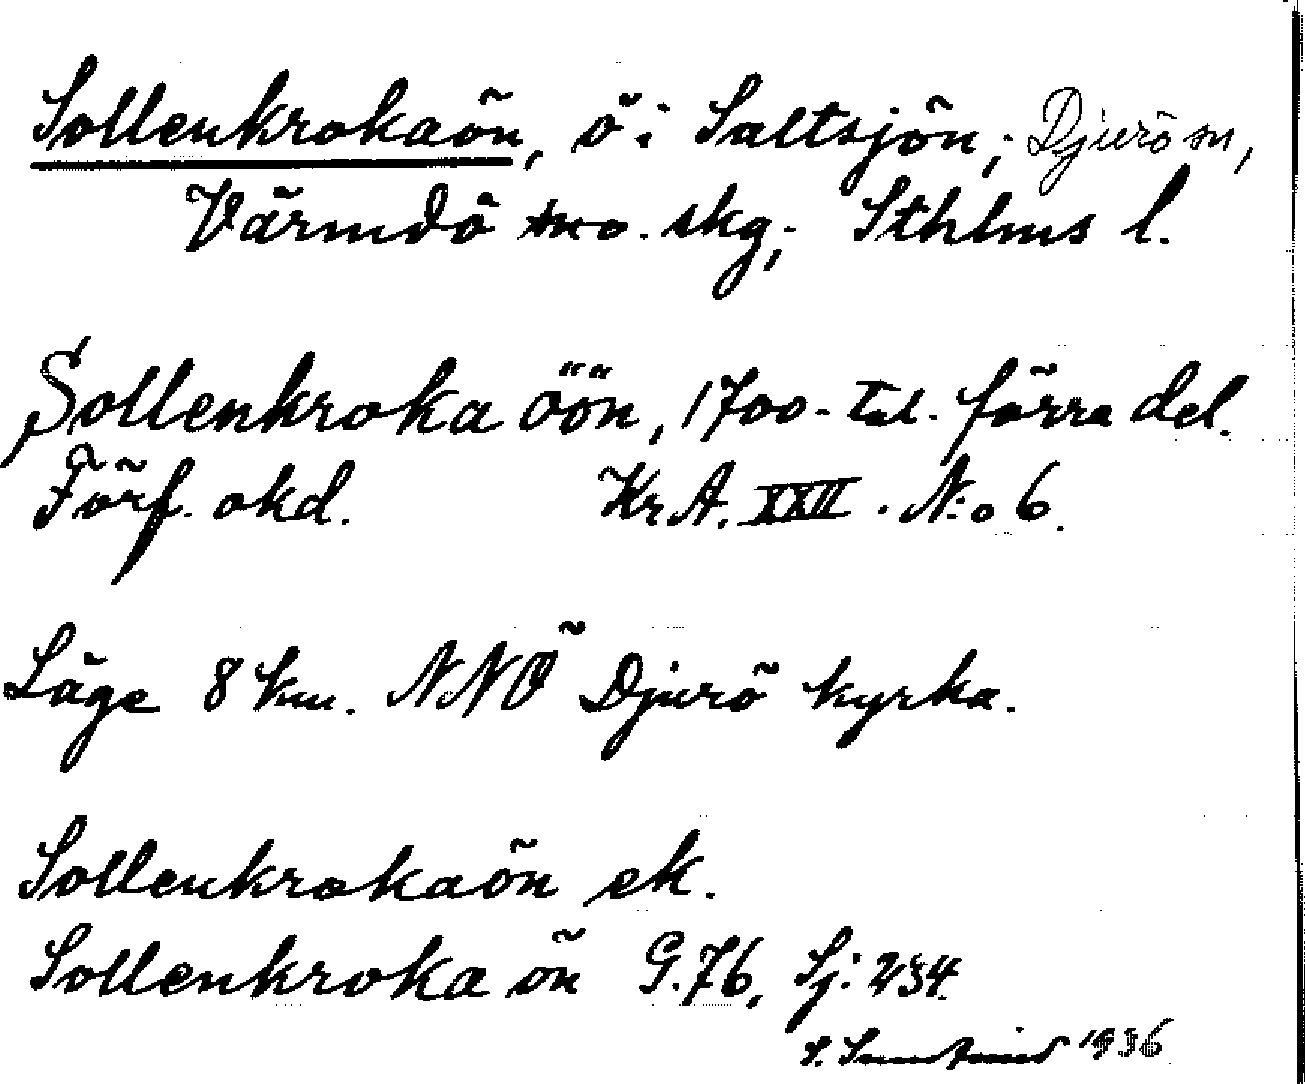 Sollenkrokaön, ö i Saltsjön, Djurö sn,
Värmdö skg, Sthlms l.
Sollenkroka öön, 1700-tal. förra del.
Förf. okd. KrA. XXII. N:o 6.
Läge 8 km. NNÖ Djurö kyrka.
Sollenkrokaön ek.
Sollenkroka ön G.76, Sj: 234.
1936